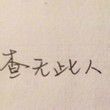 查无此人